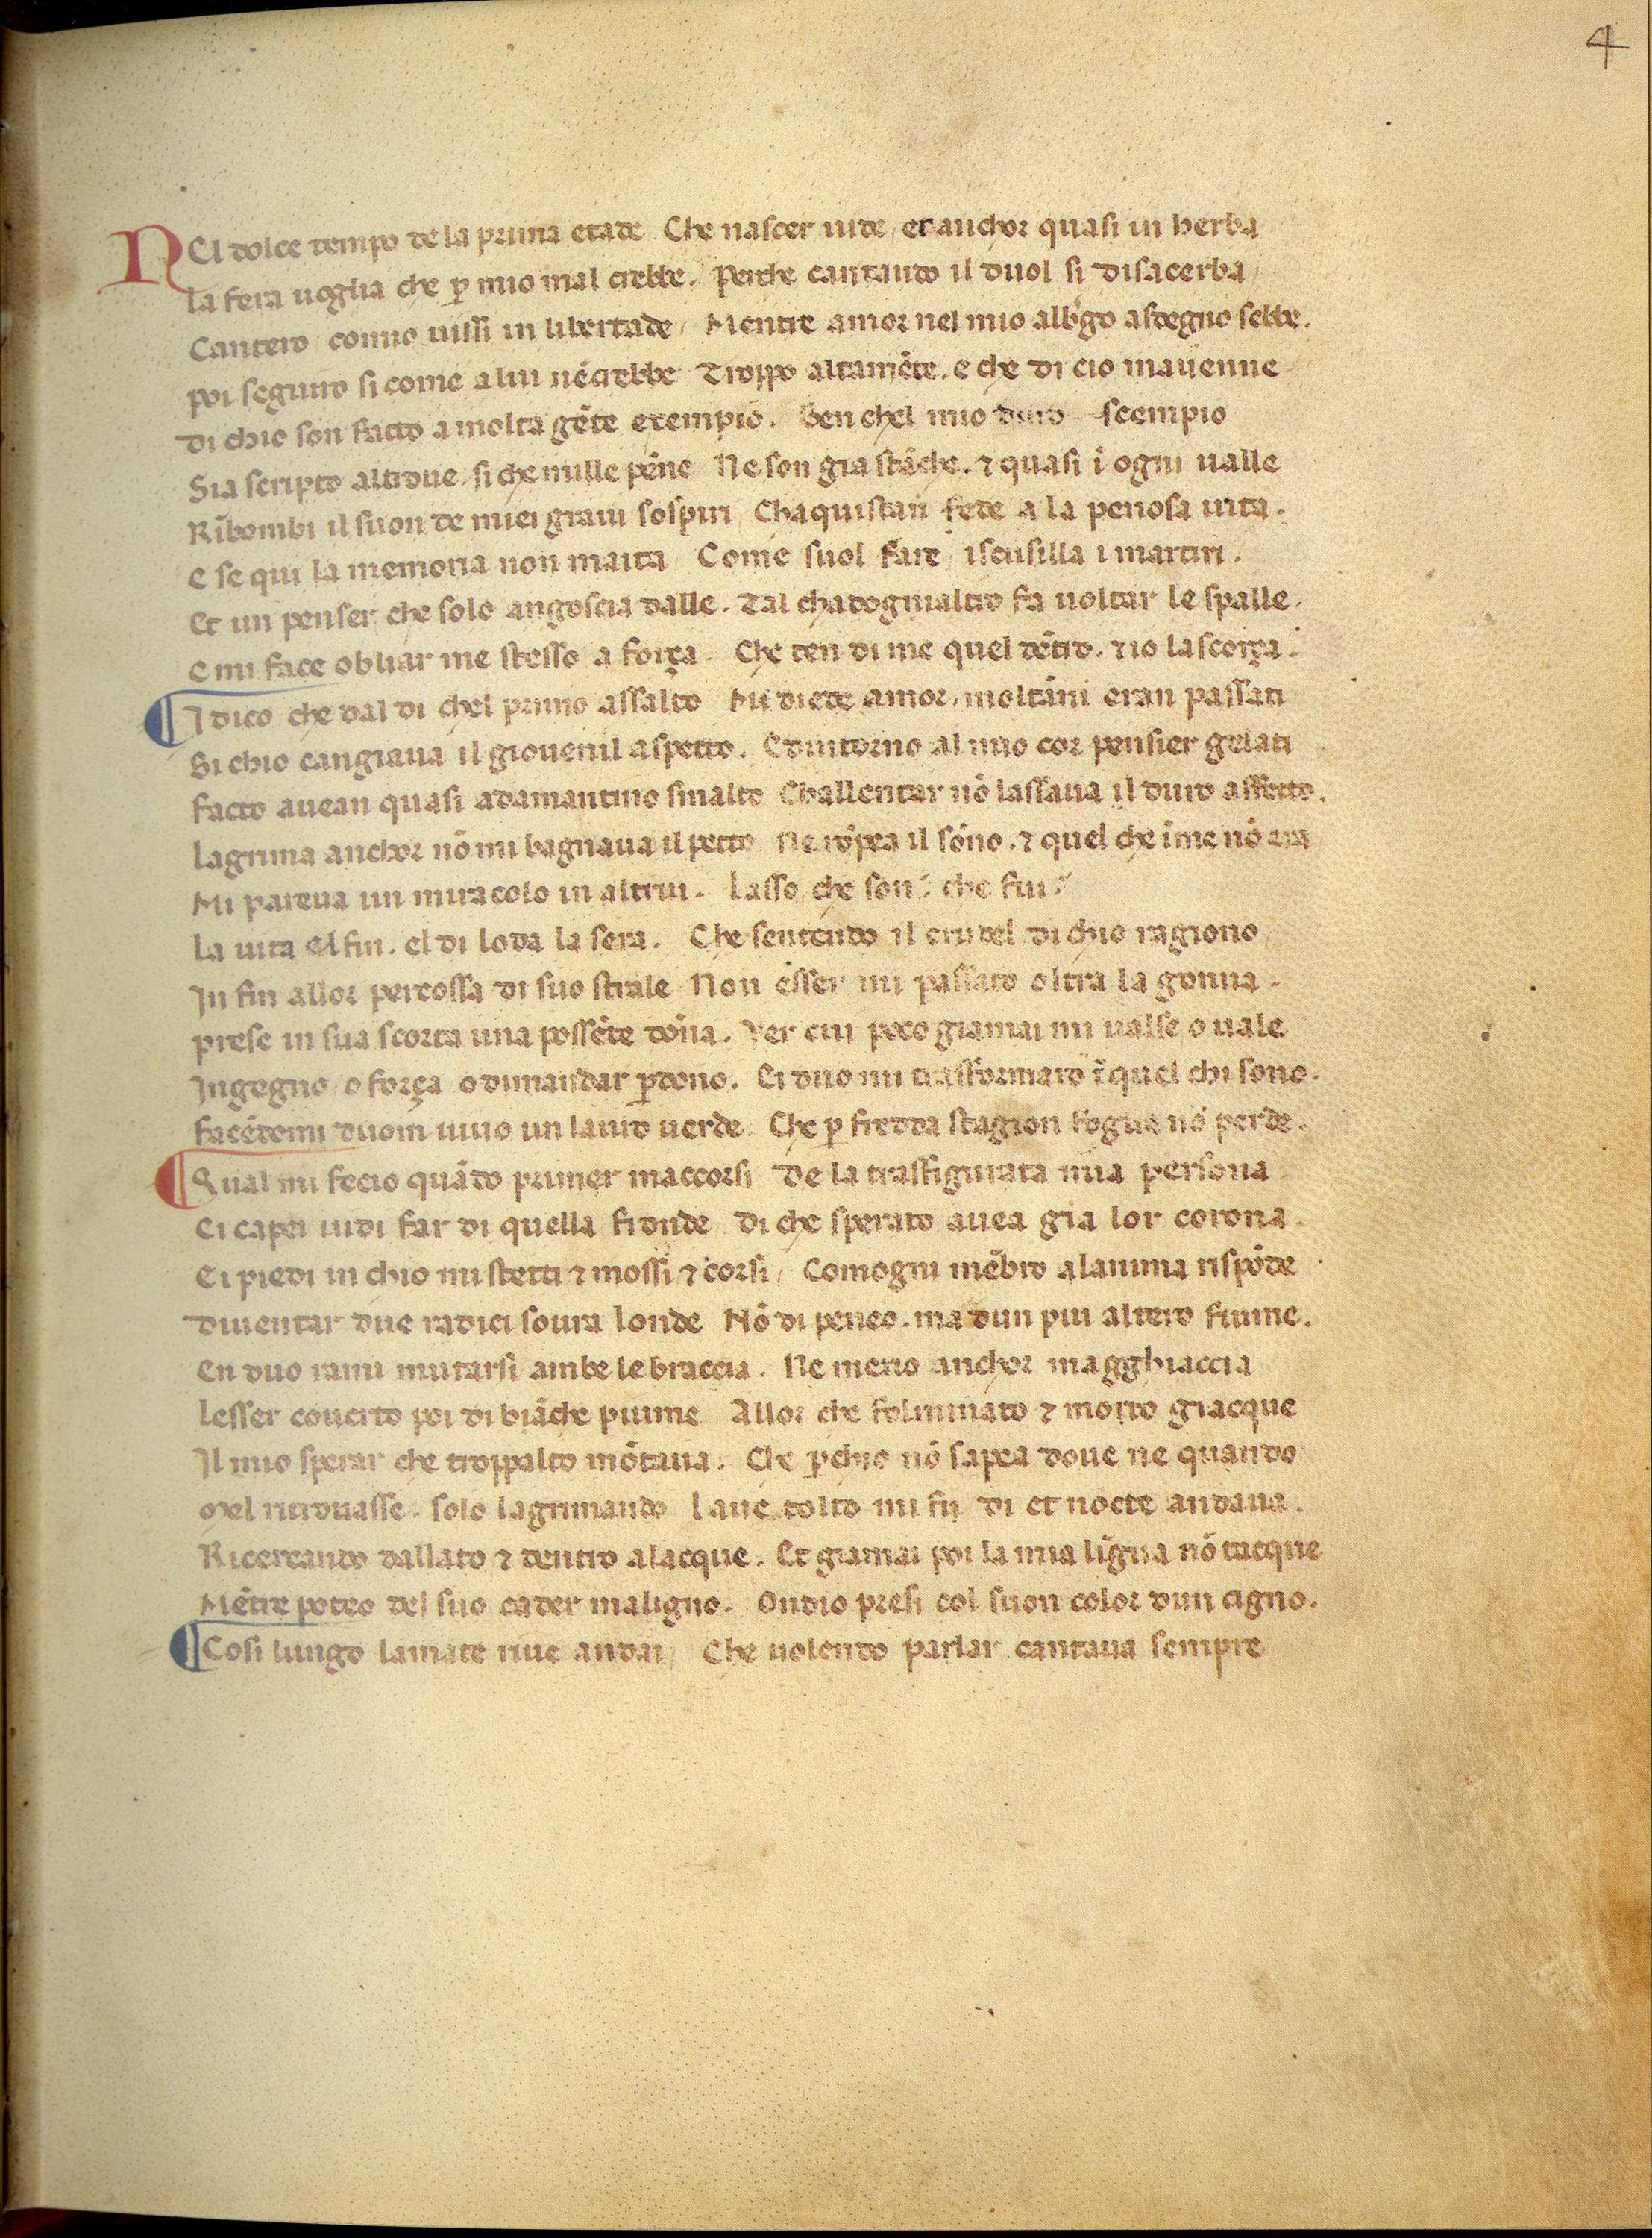 4
NEl dolce tempo de la prima etade Che nascer uide et anchor quasi in herba
La fera uoglia che p mio mal crebbe. Perche cantando il duol si disacerba
Cantero comio uissi in libertade Mentre amor nel mio albgo a sdegno sebbe.
Poi seguiro si come a lui nēcrebbe Troppo altamēte. e che di cio mauenne
Di chio son facto a molta gēte exempio. Ben chel mio duro scempio
Sia scripto altroue. si che mille pēne Ne son gia stāche. ⁊ quasi ī ogni ualle
Rībombi il suon de miei graui sospiri Chaquistan fede a la penosa uita.
E se qui la memoria non maita Come suol fare iscusilla i martiri.
Et un penser che solo angoscia dalle. Tal chadognialtro fa uoltar le spalle.
E mi face obliar me stesso a força. Che ten di me quel dētro. ⁊ io la scorça.
I dico che dal di chel primo assalto Mi diede amor, moltāni eran passati
Si chio cangiaua il giouenil aspetto. Edintorno al mio cor pensier gelati
Facto auean quasi adamantino smalto Challentar nō lassaua il duro affetto.
Lagrima anchor nō mi bagnaua il petto Ne rōpea il sōno. ⁊ quel che ī me nō era
Mi pareua un miracolo in altrui. Lasso che son? che fui?
La uita el fin. el di loda la sera. Che sentendo il crudel di chio ragiono
In fin allor percossa di suo strale Non ēsser mi passato oltra la gonna.
Prese in sua scorta una possēte dōna. Ver cui poco giamai mi ualse o uale
Ingegno o força o dimandar pdono. Ei duo mi trasformaro ī quel chi sono.
Facēdomi duom uiuo un lauro uerde Che p fredda stagion foglia nō perde.
Qual mi fecio quādo primer maccorsi De la trasfigurata mia persona
Ei capei uidi far di quella fronde Di che sperato auea gia lor corona.
Ei piedi in chio mi stetti ⁊ mossi ⁊ corsi Comogni mēbro a lanima rispōde
Diuentar due radici soura londe Nō di peneo. ma dun piu altero fiume.
En duo rami mutarsi ambe le braccia. Ne meno anchor magghiaccia
Lesser couerto poi di biāche piume Allor che folminato ⁊ morto giacque
Il mio sperar che troppalto mōtaua. Che pchio nō sapea doue ne quando
Mel ritrouasse. solo lagrimando Laue tolto mi fu di et nocte andaua.
Ricercando dallato ⁊ dentro a lacque. Et giamai poi la mia līgua nō tacque
Mētre poteo del suo cader maligno. Ondio presi col suon color dun cigno.
Cosi lungo lamate riue andai Che uolendo parlar cantaua sempre